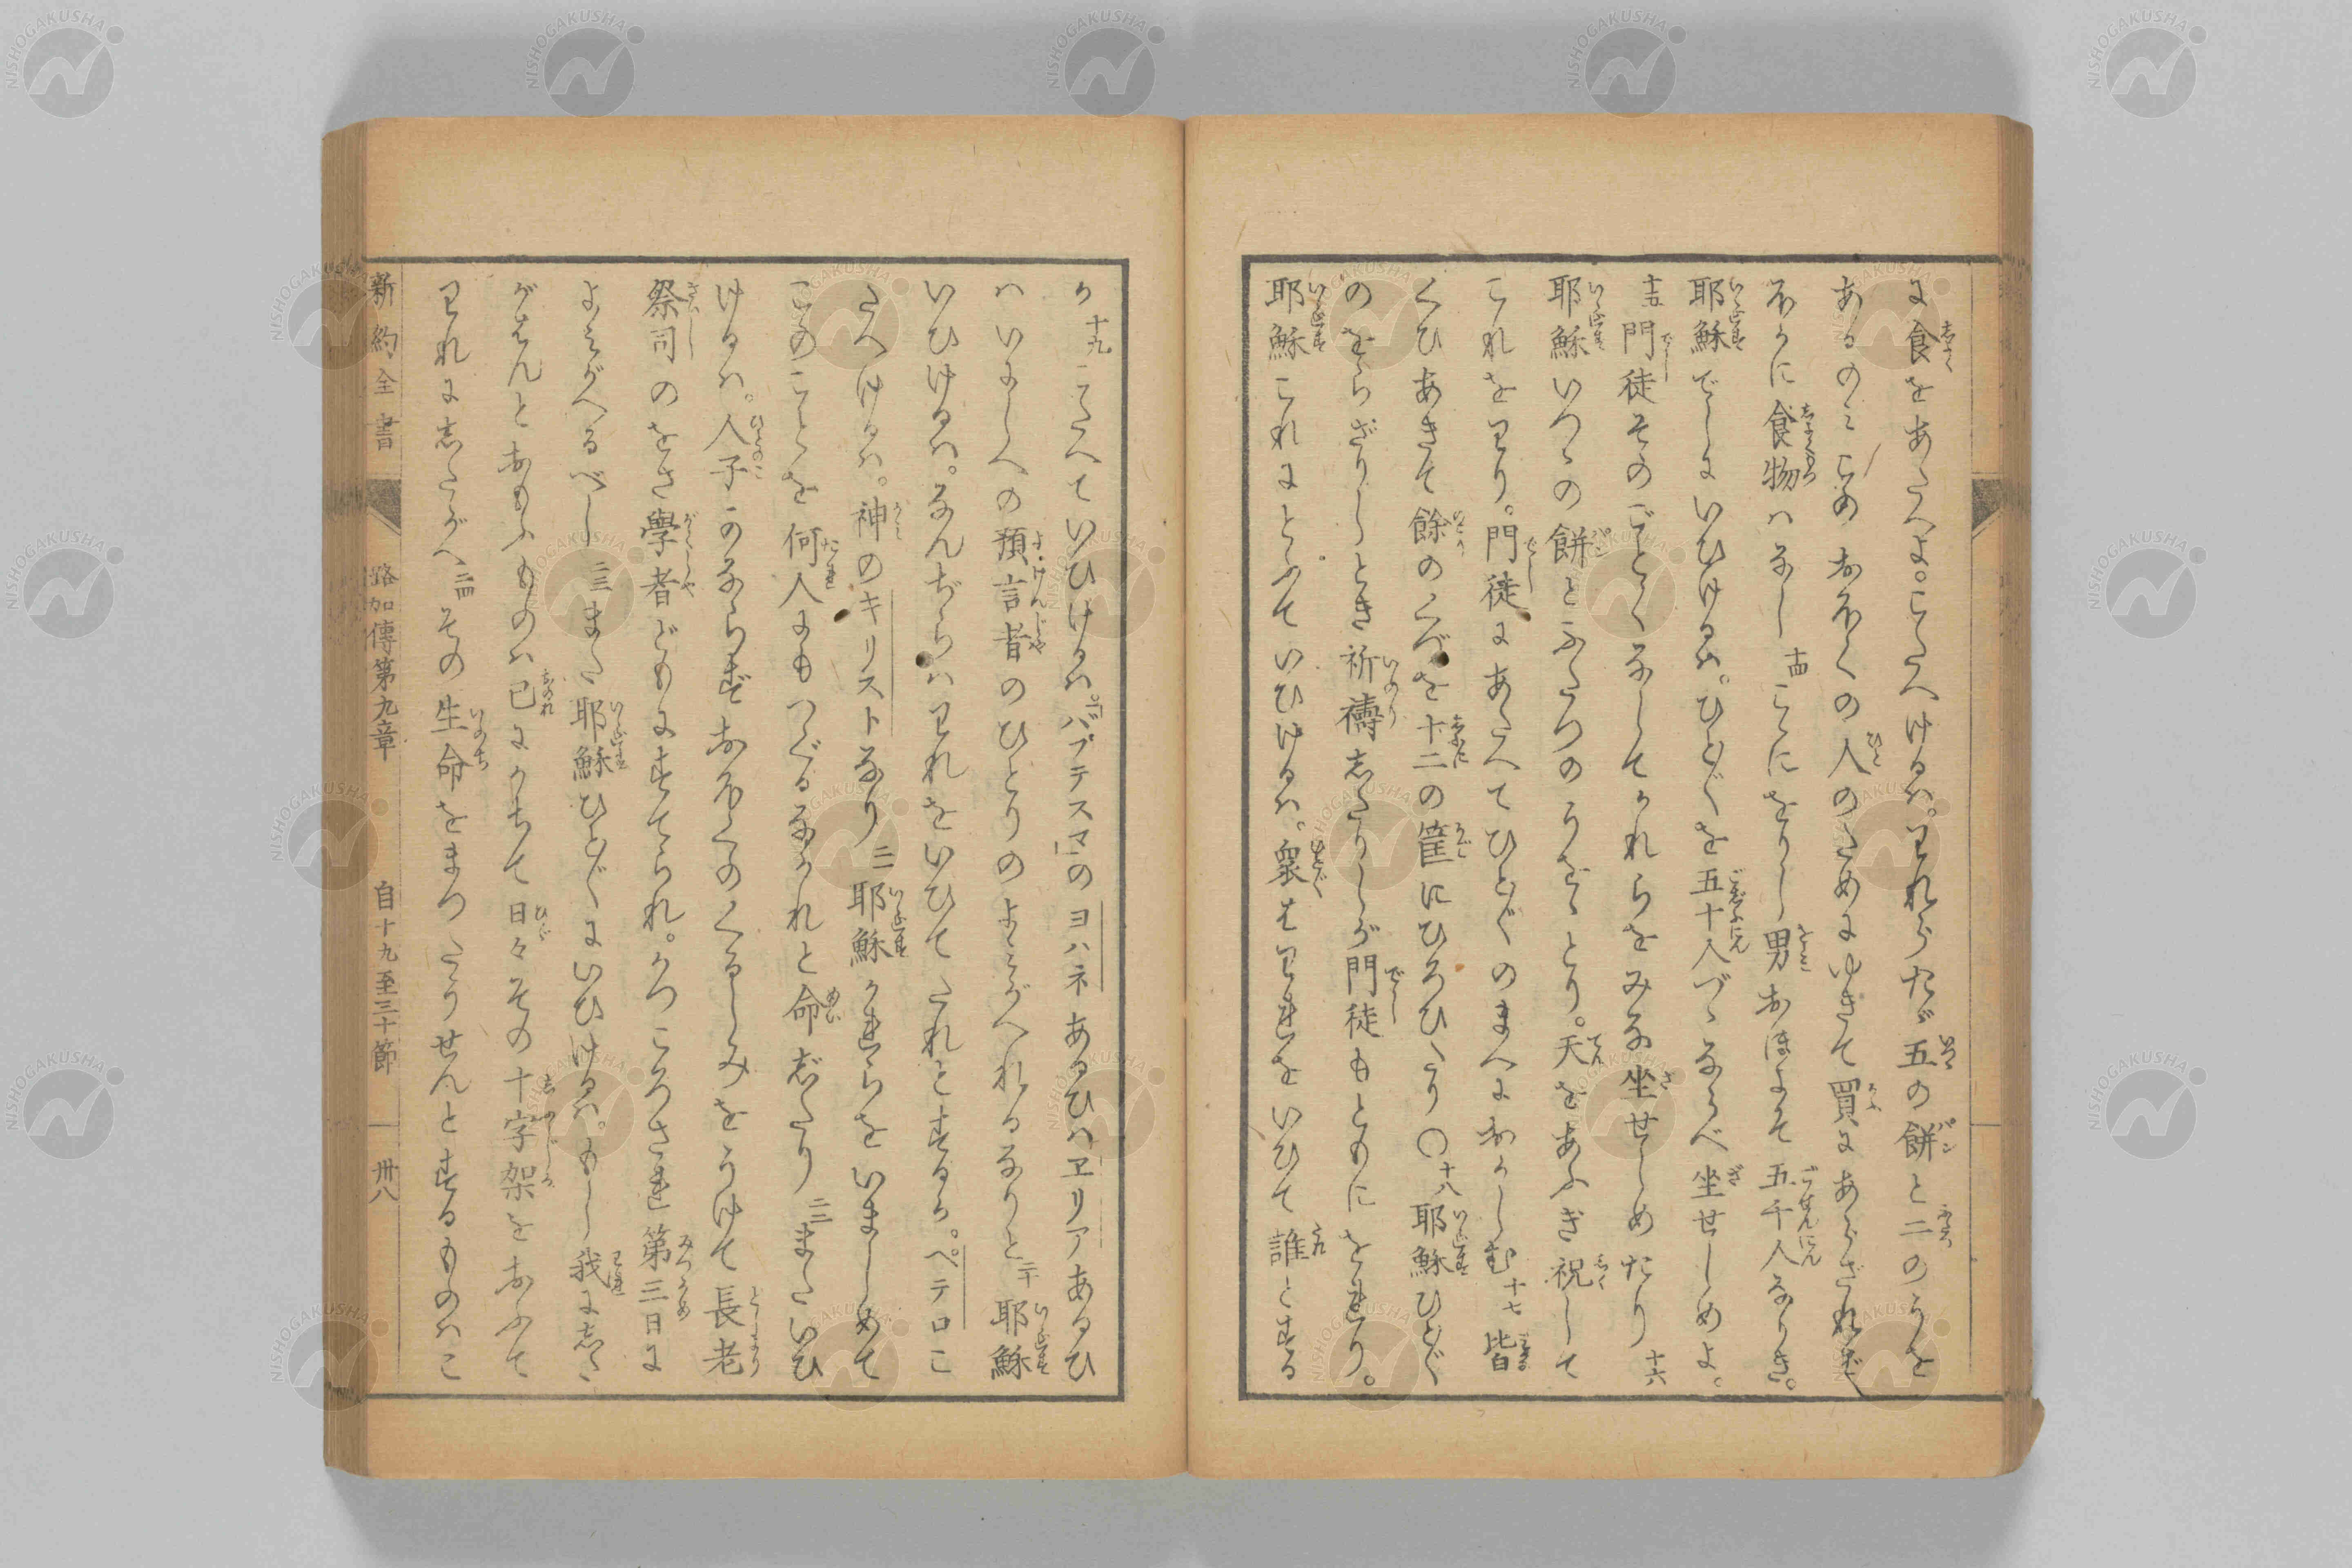 に食をあたへよ。こたへけるは。われらただ五の餅と二のうを
あるのみこのおほくの人のためにゆきて買にあらざれば
ほかに食物はなし十四ここにをりし男おほよそ五千人なりき。
耶穌でしにいひけるは。ひとびとを五十人づゝならべ坐せしめよ。
十五門徒そのごとくなしてかれらをみな坐せしめたり十六
耶穌いつゝの餅とふたつのうをゝとり。天をあふぎ祝して
これをわり。門徒にあたへてひとびとのまへにおかしむ十七皆
くひあきて餘のくづを十二の筐にひろひたり〇十八耶穌ひとびと
のをらざりしとき祈禱したりしが門徒もともにをれり。
耶穌これにとふていひけるは。衆はわれをいひて誰とする
か十九こたへていひけるは。「バプテスマ」のヨハネあるひはヱリアあるひ
はいにしへの預言者のひとりのよみがへれるなりと二十耶穌
いひけるは。なんぢらはわれをいひてたれとするか。ペテロこ
たへけるは。神のキリストなり二一耶穌かれらをいましめて
このことを何人にもつぐるなかれと命じたり二二またいひ
けるは。人子かのならずおほくのくるしみをうけて長老
祭司のをさ學者どもにすてられ。かつころされ第三日に
よみがへるべし二三また耶穌ひとびとにいひけるは。もし我にした
がはんとおもふものは己にかちて日々その十字架をおふて
われにしたがへ二四その生命をまつたうせんとするものはこ
新約全書 路加傳第九章 自十九至三十節 卅八